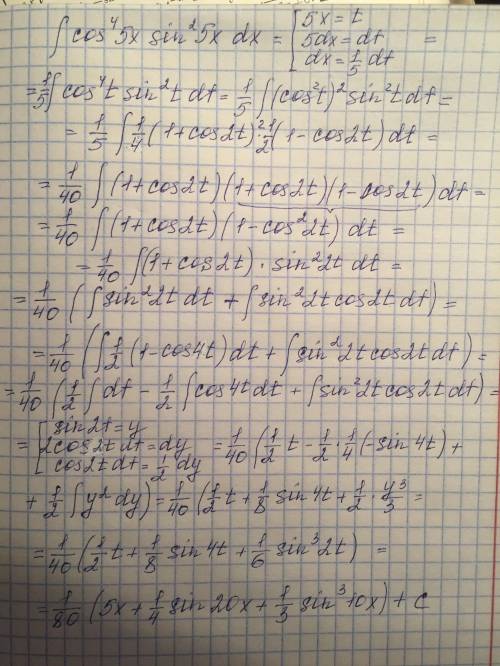 ∫ cos⁴5x sin²5x dx = [5x = t
5dx = dt
dx = 1/5 dt =
= 1/5 ∫ cos⁴t sin²t dt = 1/5 ∫ (cos²t)² sin²t dt =
= 1/5 ∫ 1/4 (1+cos2t)² · 1/2 (1-cos2t) dt =
= 1/40 ∫ (1+cos2t)(1+cos2t)(1-cos2t) dt =
= 1/40 ∫ (1+cos2t)(1-cos²2t) dt =
= 1/40 ∫ (1+cos2t) · sin²2t dt =
= 1/40 (∫ sin²2t dt + ∫ sin²2t cos2t dt) =
= 1/40 (∫ 1/2 (1-cos4t) dt + ∫ sin²2t cos2t dt) =
= 1/40 (1/2 ∫ dt - 1/2 ∫ cos4t dt + ∫ sin²2t cos2t dt) =
= [sin2t = y
2cos2t dt = dy
cos2t dt = 1/2 dy = 1/40 (1/2 t - 1/2 · 1/4 (-sin 4t) +
+ 1/2 ∫ y² dy) = 1/40 (1/2 t + 1/8 sin 4t + 1/2 · y³/3 =
= 1/40 (1/2 t + 1/8 sin 4t + 1/6 sin³2t) =
= 1/80 (5x + 1/4 sin 20x + 1/3 sin³10x) + C